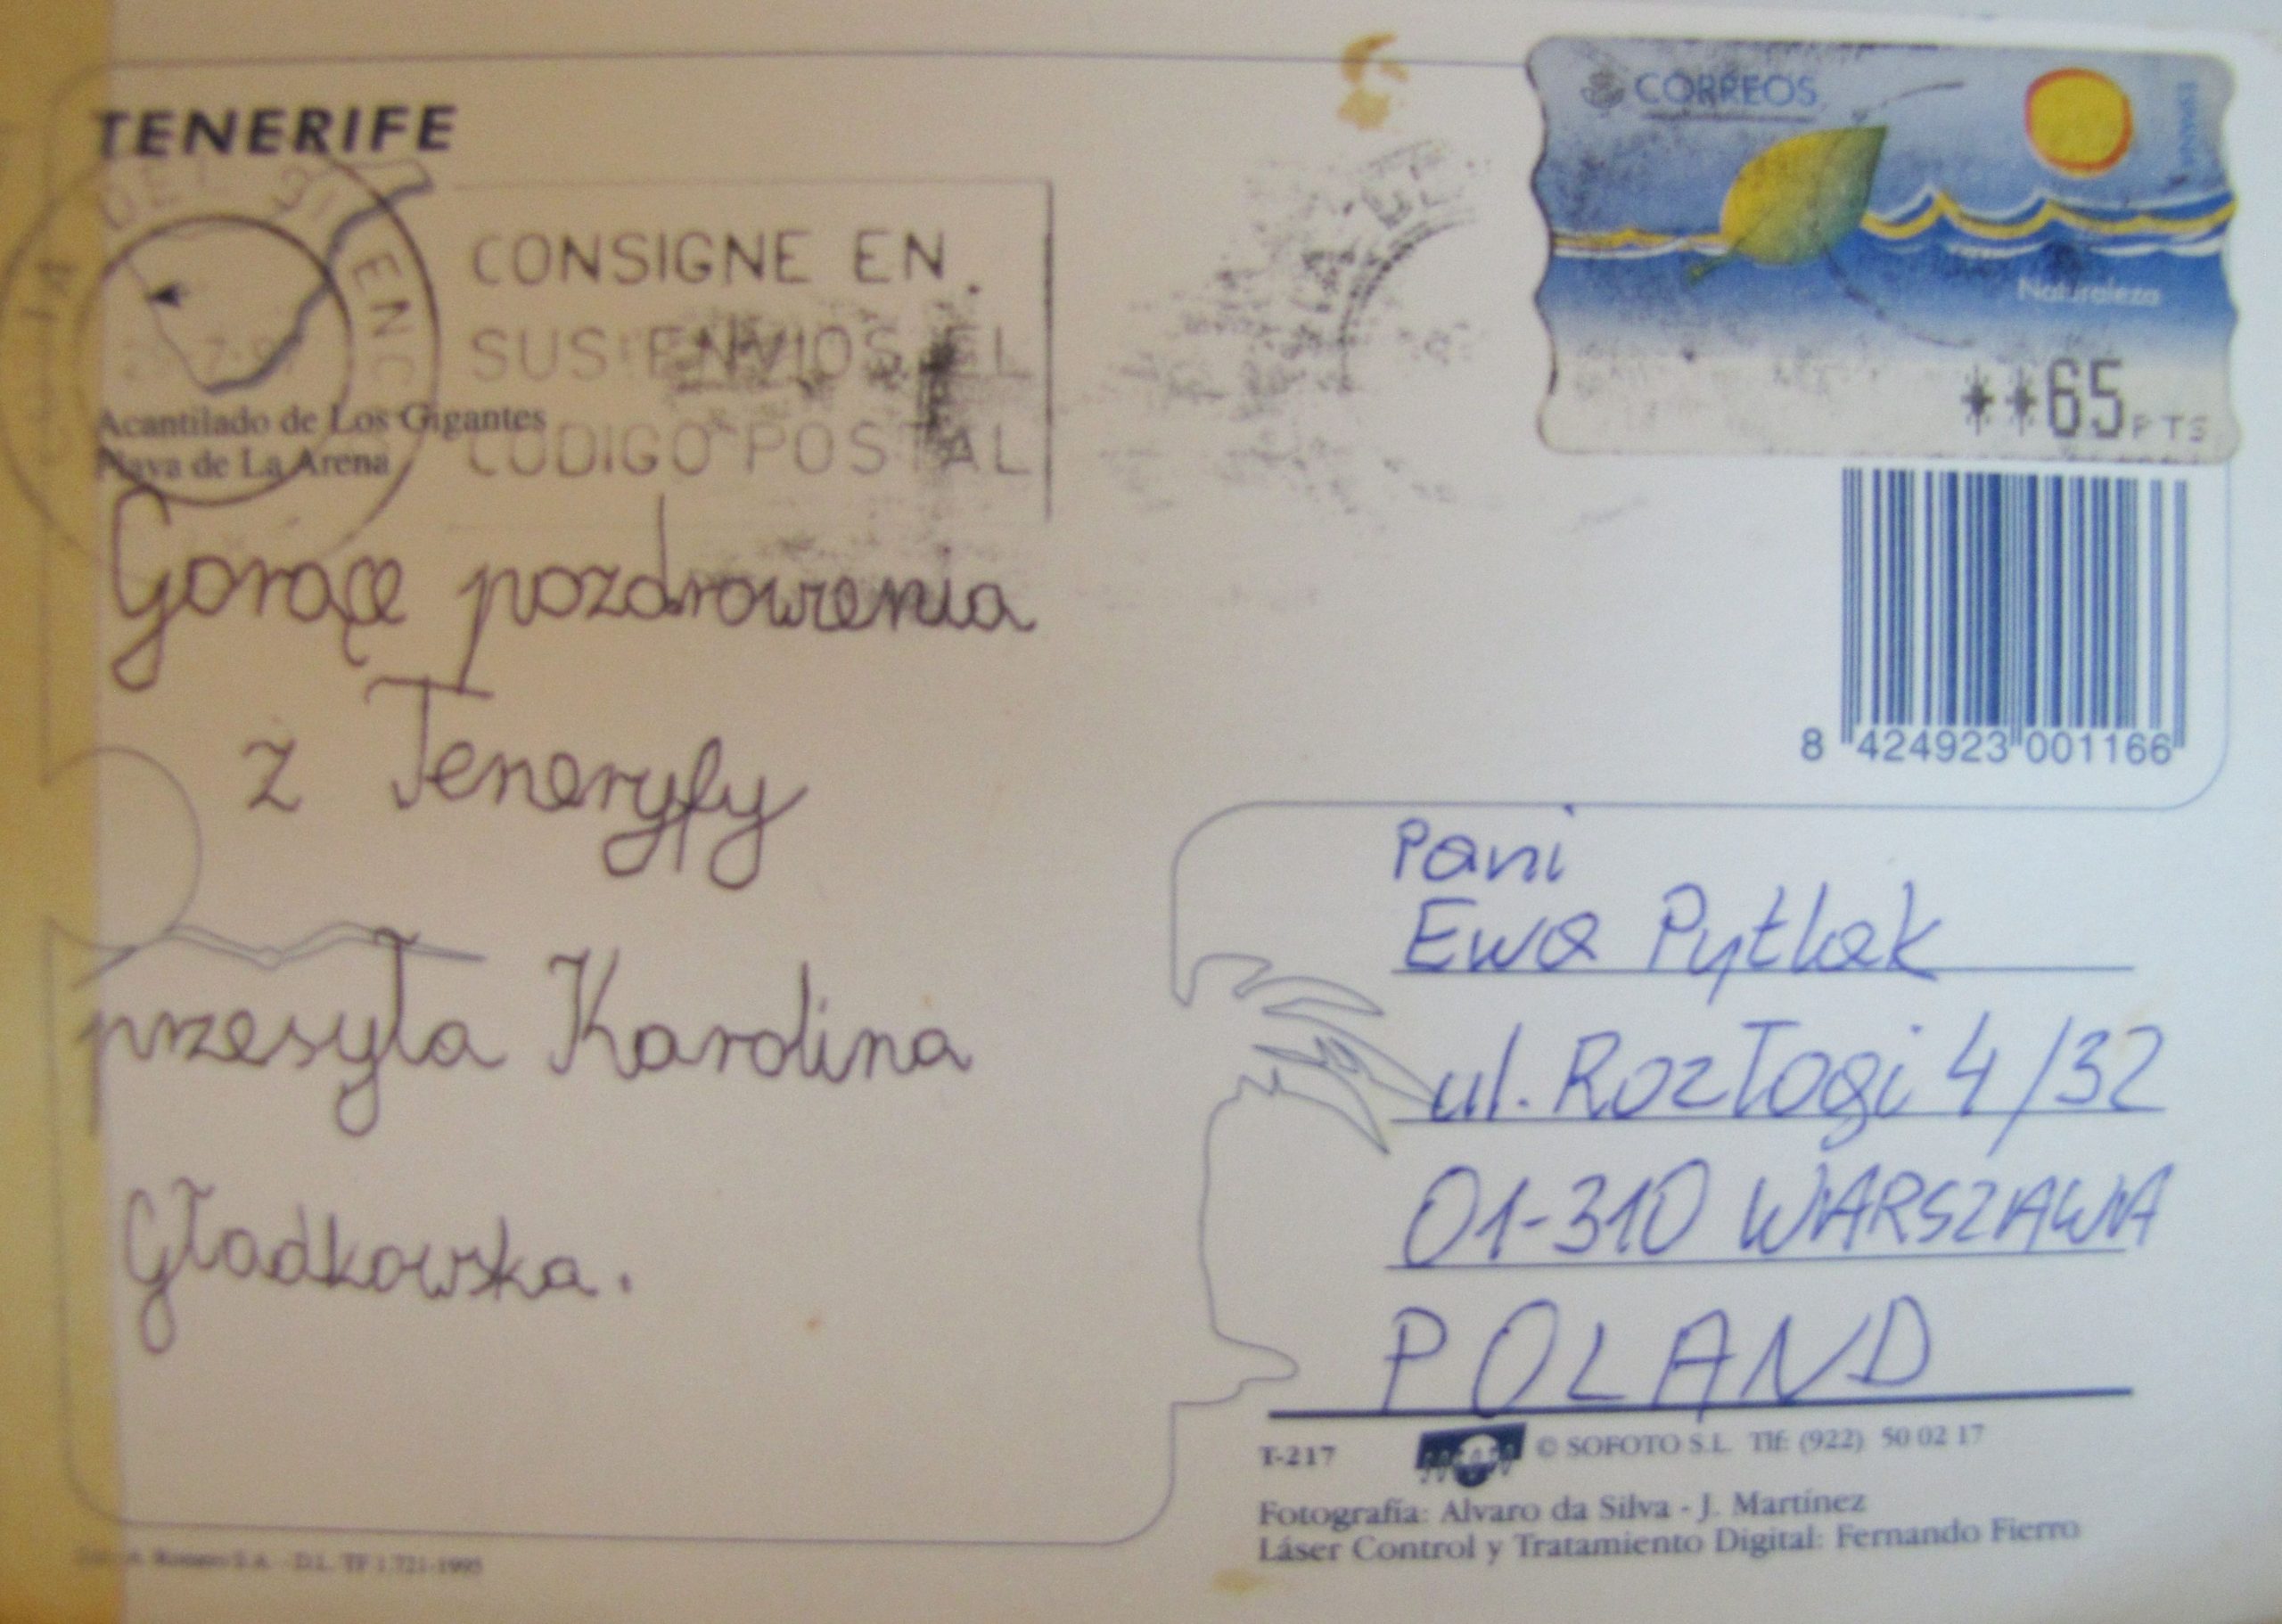 TENERIFE
CONSIGNE EN
SUS ENVIOS EL
CODIGO POSTAL
Acantilado de Los Gigantes
Playa de La Arena
CORREOS
ESPAÑA
Naturaleza
**65 PTS
8 424923 001166
Gorące pozdrowienia
z Teneryfy
przesyła Karolina
Gładkowska.
Pani
Ewa Pytlak
ul. Rozłogi 4/32
01-310 WARSZAWA
POLAND
T-217 © SOFOTO S.L. Tlf: (922) 50 02 17
Fotografía: Alvaro da Silva - J. Martínez
Láser Control y Tratamiento Digital: Fernando Fierro
A. Romero S.A. - D.L. TF 1.721-1995